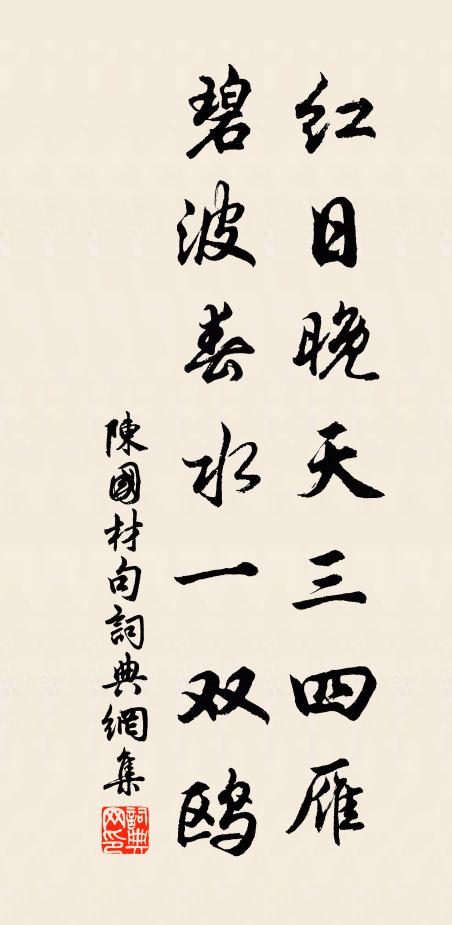 红日晚天三四雁
碧波春水一双鸥
陳國材句詞典網集
詞典
网印